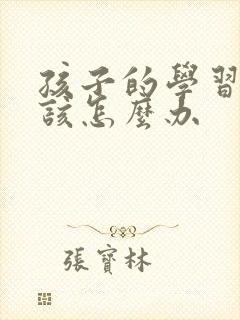 孩子的學習
該怎麼办
張寶林